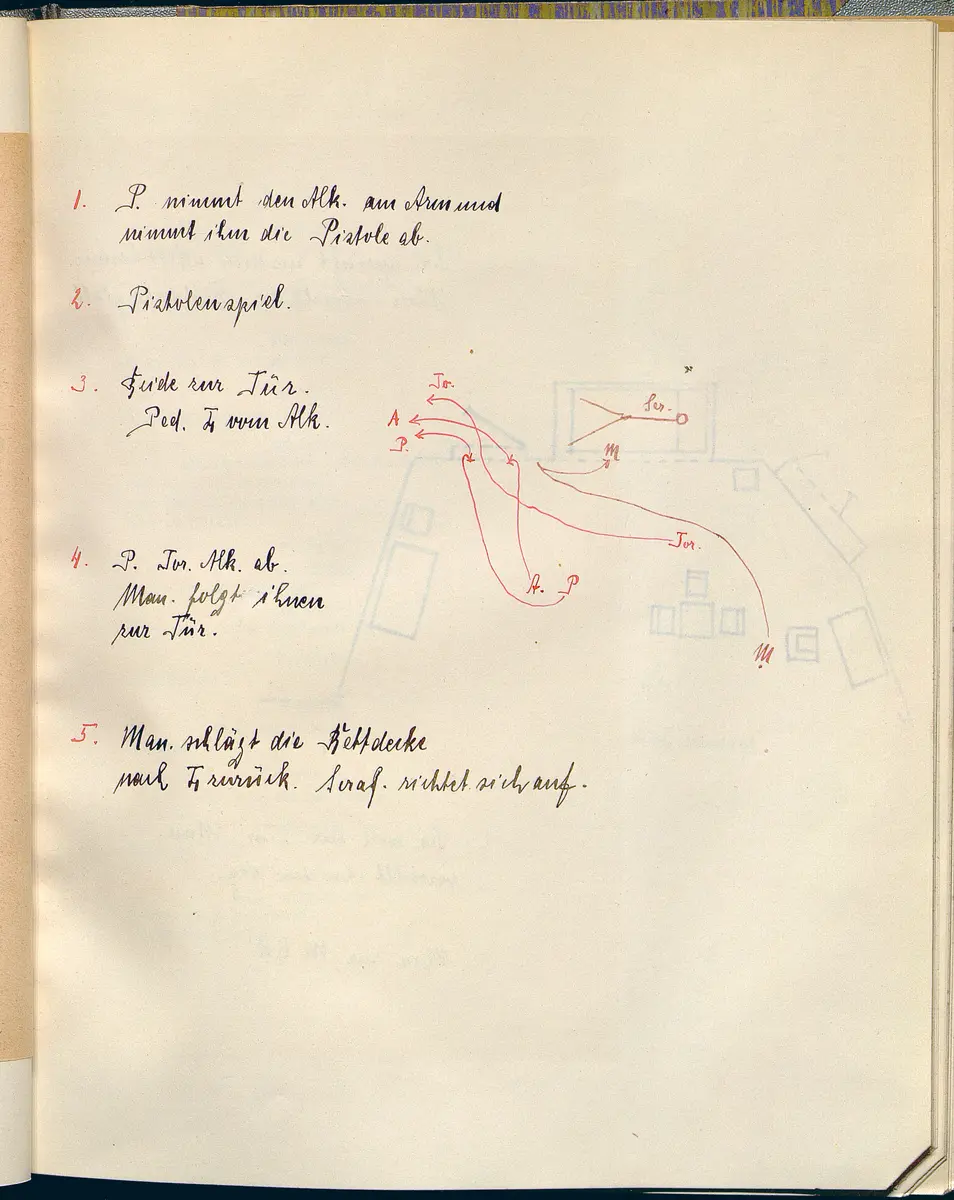 1. P. nimmt den Alk. am Arm und
nimmt ihm die Pistole ab.
2. Pistolenspiel.
3. Beide zur Tür.
Ped. L vom Alk.
To.
A
P.
Ser.
M
Tor.
A. P
M
4. P. Tor. Alk. ab.
Man. folgt ihnen
zur Tür.
5. Man. schlägt die Bettdecke
nach L zurück. Seraf. richtet sich auf.